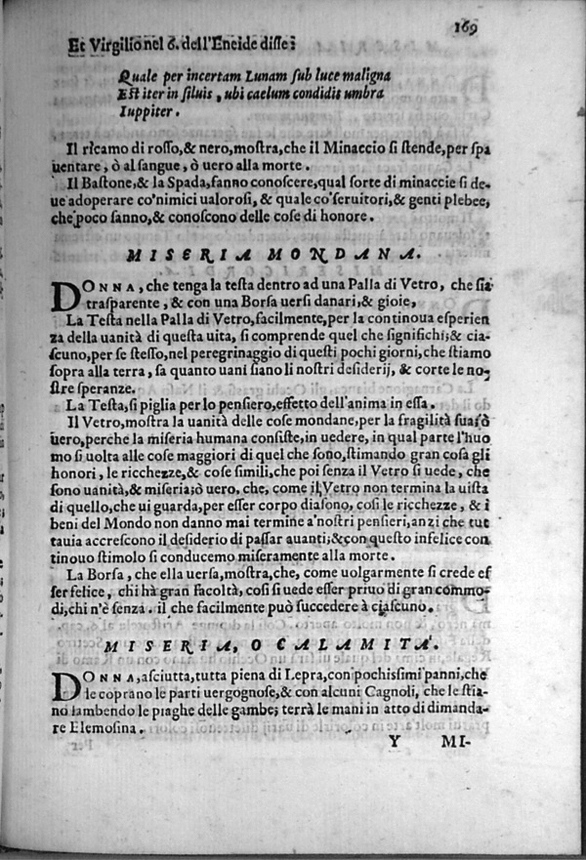 169
Et Virgilio nel 6. dell'Eneide disse:
Quale per incertam Lunam sub luce maligna
Est iter in siluis, ubi caelum condidit umbra
Iuppiter.
Il ricamo di rosso,& nero,mostra,che il Minaccio si stende,per spa
uentare, ò al sangue, ò uero alla morte.
Il Bastone,& la Spada,fanno conoscere,qual sorte di minaccie si de-
ue adoperare co'nimici ualorosi, & quale co'seruitori,& genti plebee,
che poco sanno,& conoscono delle cose di honore.
MISERIA MONDANA.
DONNA, che tenga la testa dentro ad una Palla di Vetro, che sia
trasparente, & con una Borsa uersi danari,& gioie,
La Testa nella Palla di Vetro,facilmente,per la continoua esperien
za della uanità di questa uita, si comprende quel che significhi;& cia-
scuno,per se stesso,nel peregrinaggio di questi pochi giorni,che stiamo
sopra alla terra, sa quanto uani siano li nostri desiderij, & corte le no-
stre speranze.
La Testa,si piglia per lo pensiero,effetto dell'anima in essa.
Il Vetro,mostra la uanità delle cose mondane,per la fragilità sua;ò
uero,perche la miseria humana consiste,in uedere, in qual parte l'huo
mo si uolta alle cose maggiori di quel che sono,stimando gran cosa gli
honori, le ricchezze,& cose simili,che poi senza il Vetro si uede, che
sono uanità,& miseria;ò uero, che, come il Vetro non termina la uista
di quello,che ui guarda,per esser corpo diafono, così le ricchezze, & i
beni del Mondo non danno mai termine a'nostri pensieri,anzi che tut
tauia accrescono il desiderio di passar auanti;&con questo infelice con
tinouo stimolo si conducemo miseramente alla morte.
La Borsa, che ella uersa,mostra,che, come uolgarmente si crede es
ser felice, chi hà gran facoltà, così si uede esser priuo di gran commo-
di,chi n'è senza. il che facilmente può succedere à ciascuno.
MISERIA, O CALAMITA'.
DONNA,asciutta,tutta piena di Lepra,con pochissimi panni,che
le coprano le parti uergognose,& con alcuni Cagnoli, che le stia-
no lambendo le piaghe delle gambe; terrà le mani in atto di dimanda-
re Elemosina.
Y MI-